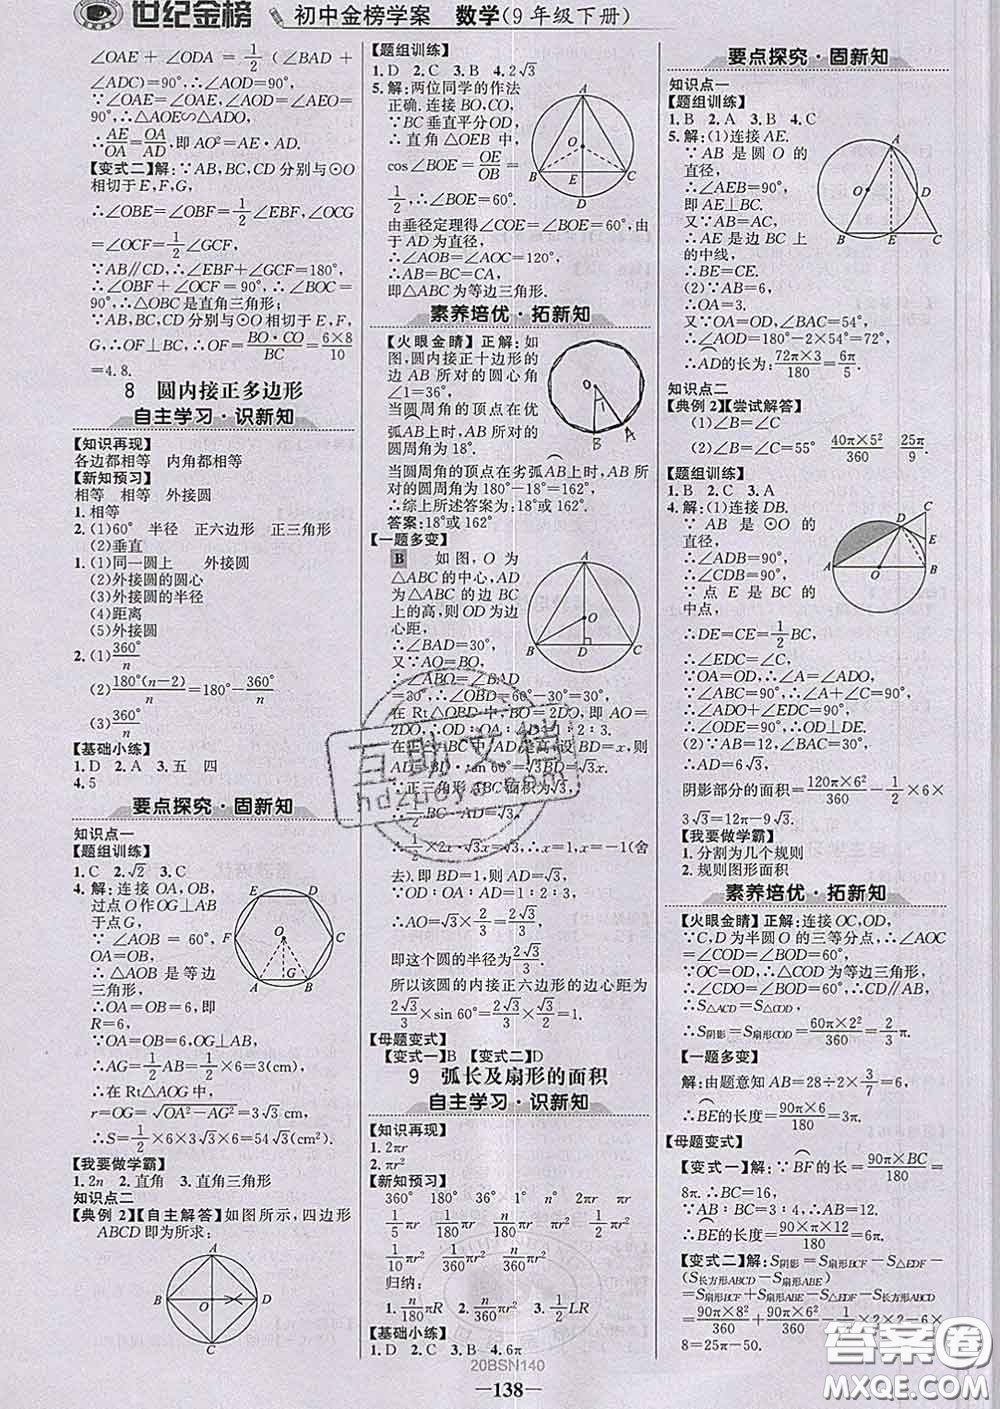 世纪金榜 初中金榜学案 数学(9年级下册)
∠OAE+∠ODA=1/2(∠BAD+
∠ADC)=90°,
∵∠OAE=∠OAE,∠AEO=90°,
∴∠AOE∽∠ADO,
∴AE/OA=OA/AD,即AO²=AE·AD.
【变式二】解:∵AB,BC,CD分别与⊙O
相切于E,F,G,
∴∠OBE=∠OBF=1/2∠EBF,∠OCG
=∠OCF=1/2∠GCF,
∵AB∥CD,∴∠EBF+∠GCF=180°,
∴∠OBF+∠OCF=90°,∴∠BOC=
90°,∴△OBC是直角三角形;
∵AB,BC,CD分别与⊙O相切于E,F,
G,∴OF⊥BC,∴OF=BO·CO/BC=6×8/10
=4.8.
8 圆内接正多边形
自主学习·识新知
【知识再现】
各边都相等 内角都相等
【新知预习】
相等 相等 外接圆
1.相等
2.(1)60° 半径 正六边形 正三角形
(2)垂直
1.(1)同一圆上 外接圆
(2)外接圆的圆心
(3)外接圆的半径
(4)距离
(5)外接圆
2.(1)360°/n
(2)180°(n-2)/n=180°-360°/n
(3)360°/n
【基础小练】
1.D 2.A 3.五 四
4.5
要点探究·固新知
知识点一
【题组训练】
1.C 2.√2 3.C
4.解:连接OA,OB,
过点O作OG⊥AB
于点G,
∵∠AOB=60°,
OA=OB,
∴△AOB是等边
三角形,
∴OA=OB=6,即
R=6,
∵OA=OB=6,OG⊥AB,
∴AG=1/2AB=1/2×6=3(cm),
∴在Rt△AOG中,
r=OG=√(OA²-AG²)=3√3 cm,
∴S=1/2×6×3√3×6=54√3(cm²).
【我要做学霸】
1.2n 2.直角 直角三角形
知识点二
【典例2】【自主解答】如图所示,四边形
ABCD即为所求:
A
B O D
C
【题组训练】
1.D 2.C 3.B 4.2√3
5.解:两位同学的作法
正确.连接BO,CO,
∵BC垂直平分OD,
∴直角△OEB中,
cos∠BOE=OE/OB=
1/2,∠BOE=60°.
由垂径定理得∠COE=∠BOE=60°,由
于AD为直径,
∴∠AOB=∠AOC=120°,
∴AB=BC=CA.
即△ABC为等边三角形.
素养培优·拓新知
【火眼金睛】正解:如
图,圆内接正十边形的
边AB所对的圆心角
∠1=36°,
当圆周角的顶点在优
弧AB上时,AB所对的
圆周角为18°.
当圆周角的顶点在劣弧AB上时,AB所
对的圆周角为180°-18°=162°,
∴综上所述答案为:18°或162°.
答案:18°或162°
【一题多变】
B 如图,O为
△ABC的中心,AD
为△ABC的BC边
上的高,则OD为边
心距,
∴∠BAD=30°,
又∵AO=BO,
∴∠ABO=∠BAD
=30°,∴∠OBD=60°-30°=30°,
在Rt△OBD中,BO=2DO,即AO=
2DO,∴OD∶OA∶AD=1∶2∶3.
在正△ABC中,AD是高,设BD=x,则AD
=BD·tan 60°=√3BD=√3x.
∵正三角形ABC面积为√3,
∴1/2BC·AD=√3,
∴1/2×2x·√3x=√3,∴x=1,x=-1(舍
去).即BD=1,则AD=√3,
∵OD∶OA∶AD=1∶2∶3,
∴AO=√3×2/3=2√3/3,
即这个圆的半径为2√3/3.
所以该圆的内接正六边形的边心距为
2√3/3×sin 60°=2√3/3×√3/2=1.
【母题变式】
【变式一】B 【变式二】D
9 弧长及扇形的面积
自主学习·识新知
【知识再现】
1.2πr
2.πr²
【新知预习】
360° 180° 36° 1° n° 2πr πr
1/5πr 1/180πr n/180πr πr² 1/2πr²
1/10πr² 1/360πr² n/360πr²
归纳:
1.n/180πR 2.n/360πR² 3.1/2LR
【基础小练】
1.D 2.C 3.B 4.6π
要点探究·固新知
知识点一
【题组训练】
1.B 2.A 3.B 4.C
5.解:(1)连接AE.
∵AB是圆O的
直径,
∴∠AEB=90°,
即AE⊥BC.
又∵AB=AC,
∴AE是边BC上
的中线,
∴BE=CE.
(2)∵AB=6,
∴OA=3.
又∵OA=OD,∠BAC=54°,
∴∠AOD=180°-2×54°=72°,
∴AD的长为:72π×3/180=6π/5.
知识点二
【典例2】【尝试解答】
(1)∠B=∠C
(2)∠B=∠C=55° 40π×5²/360 25π/9.
【题组训练】
1.B 2.C 3.A
4.解:(1)连接DB.
∵AB是⊙O的
直径,
∴∠ADB=90°,
∴∠CDB=90°,
∵点E是BC的
中点,
∴DE=CE=1/2BC,
∴∠EDC=∠C,
∵OA=OD,∴∠A=∠ADO,
∵∠ABC=90°,∴∠A+∠C=90°,
∴∠ADO+∠EDC=90°,
∴∠ODE=90°,∴OD⊥DE.
(2)∵AB=12,∠BAD=30°,
∴∠AOD=120°,
∴AD=6√3,
阴影部分的面积=120π×6²/360-1/2×6×
3√3=12π-9√3.
【我要做学霸】
1.分割为几个规则
2.规则图形面积
素养培优·拓新知
【火眼金睛】正解:连接OC,OD,
∵C,D为半圆O的三等分点,∴∠AOC
=∠COD=∠BOD=60°,
∵OC=OD,∴△COD为等边三角形,
∴∠CDO=∠BOD=60°,∴CD∥AB,
∴S△ACD=S△COD,
∴S阴影=S扇形COD=60π×2²/360=2/3π.
【一题多变】
解:由题意知AB=28÷2×3/7=6,
∴BE的长度=90π×6/180=3π.
【母题变式】
【变式一】解:∵BF的长=90π×BC/180=
8π.∴BC=16,
∵AB∶BC=3∶4,∴AB=12,
∴BE的长度=90π×12/180=6π.
【变式二】解:S阴影=S扇形BCF-S△EDF-
(S长方形ABCD-S扇形ABE)
=S扇形BCF+S扇形ABE-S△EDF-S长方形ABCD
=90π×8²/360+90π×6²/360-1/2×2×2-6×
8=25π-50.
20BSN140
—138—
互助文档
hdzuoye.com
答案圈
MXQE.COM